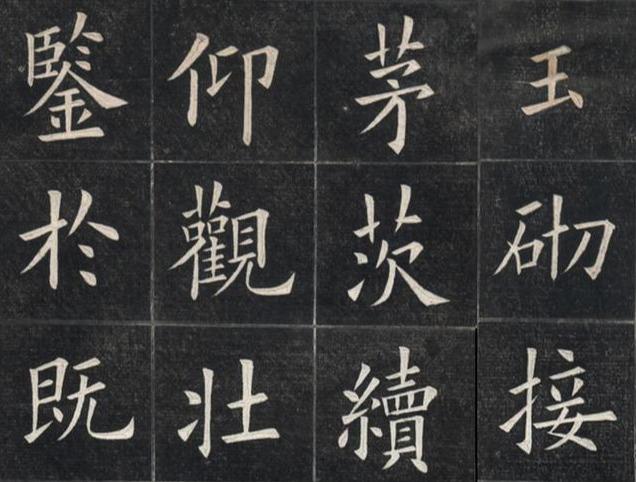 玉砌接
茅茨續
仰觀壯
鍳於既